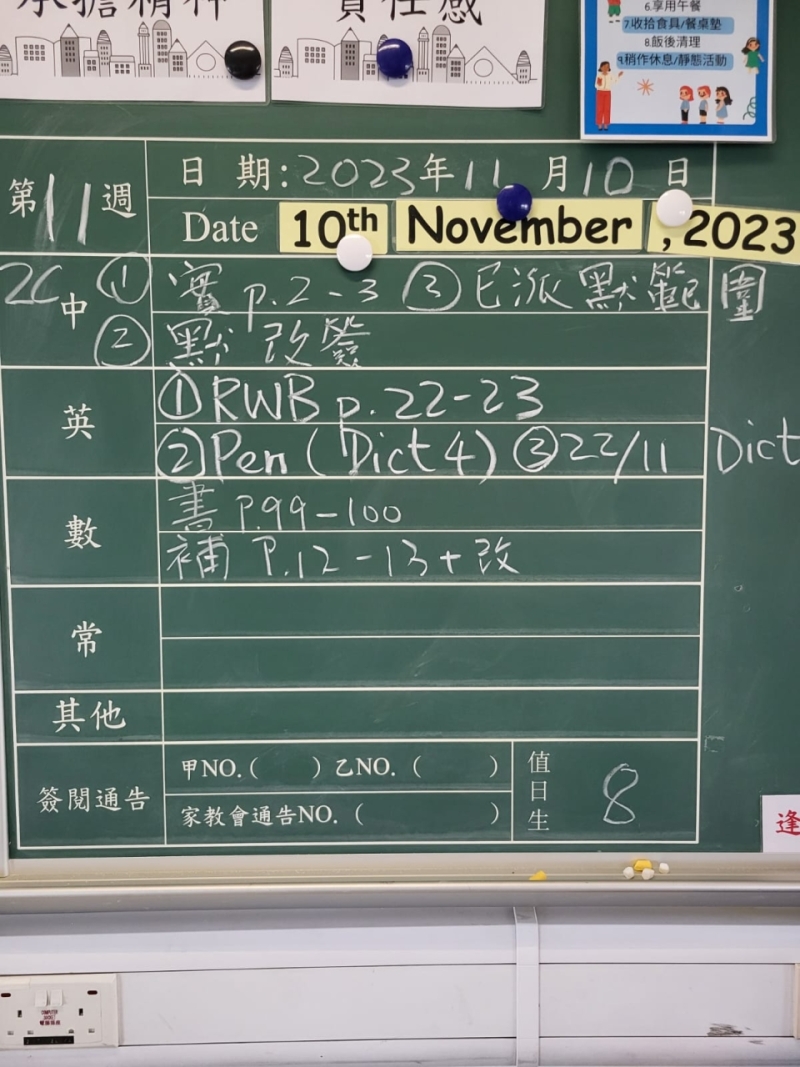 承擔精神
責任感
6.享用午餐
7.收拾食具/餐桌墊
8.飯後清理
9.稍作休息/靜態活動
第11週
日期:2023年11月10日
Date 10th November, 2023
2C 中 ① 實 p.2-3 ③ 已派默範圍
② 默改簽
英 ① RWB p.22-23
② Pen (Dict 4) ③ 22/11 Dict
數 書 P.99-100
補 P.12-13+改
常
其他
簽閱通告 甲NO.( ) 乙NO. ( )
家教會通告NO. ( )
值日生 8
逢
COMPUTER SOCKET
電腦插座